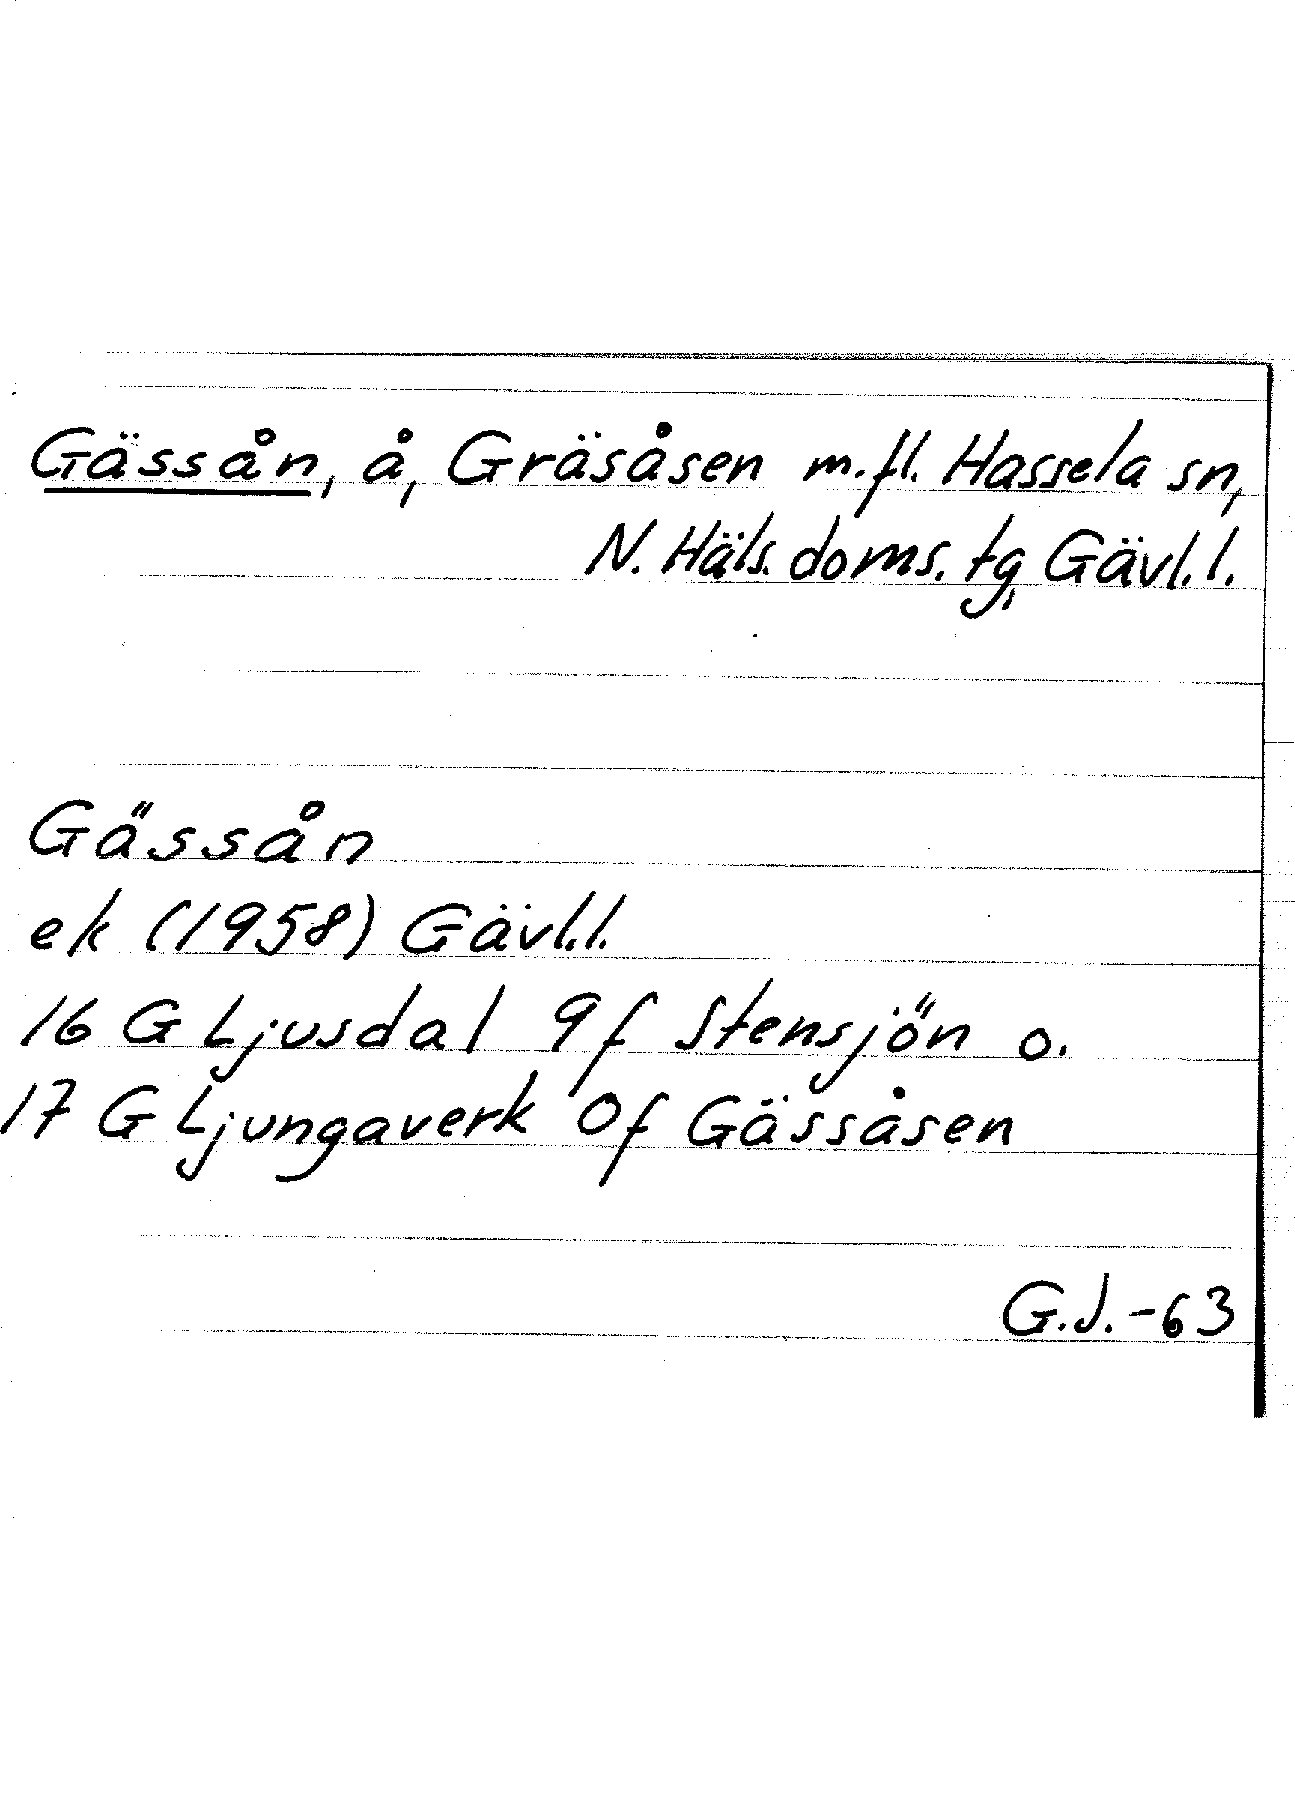 Gässån, å, Gräsåsen m.fl. Hassela sn,
N. Häls. doms. tg, Gävl. l.
Gässån
ek (1958) Gävl.l.
16 G Ljusdal 9f Stensjön o.
17 G Ljungaverk 0f Gässåsen
G.J.-63